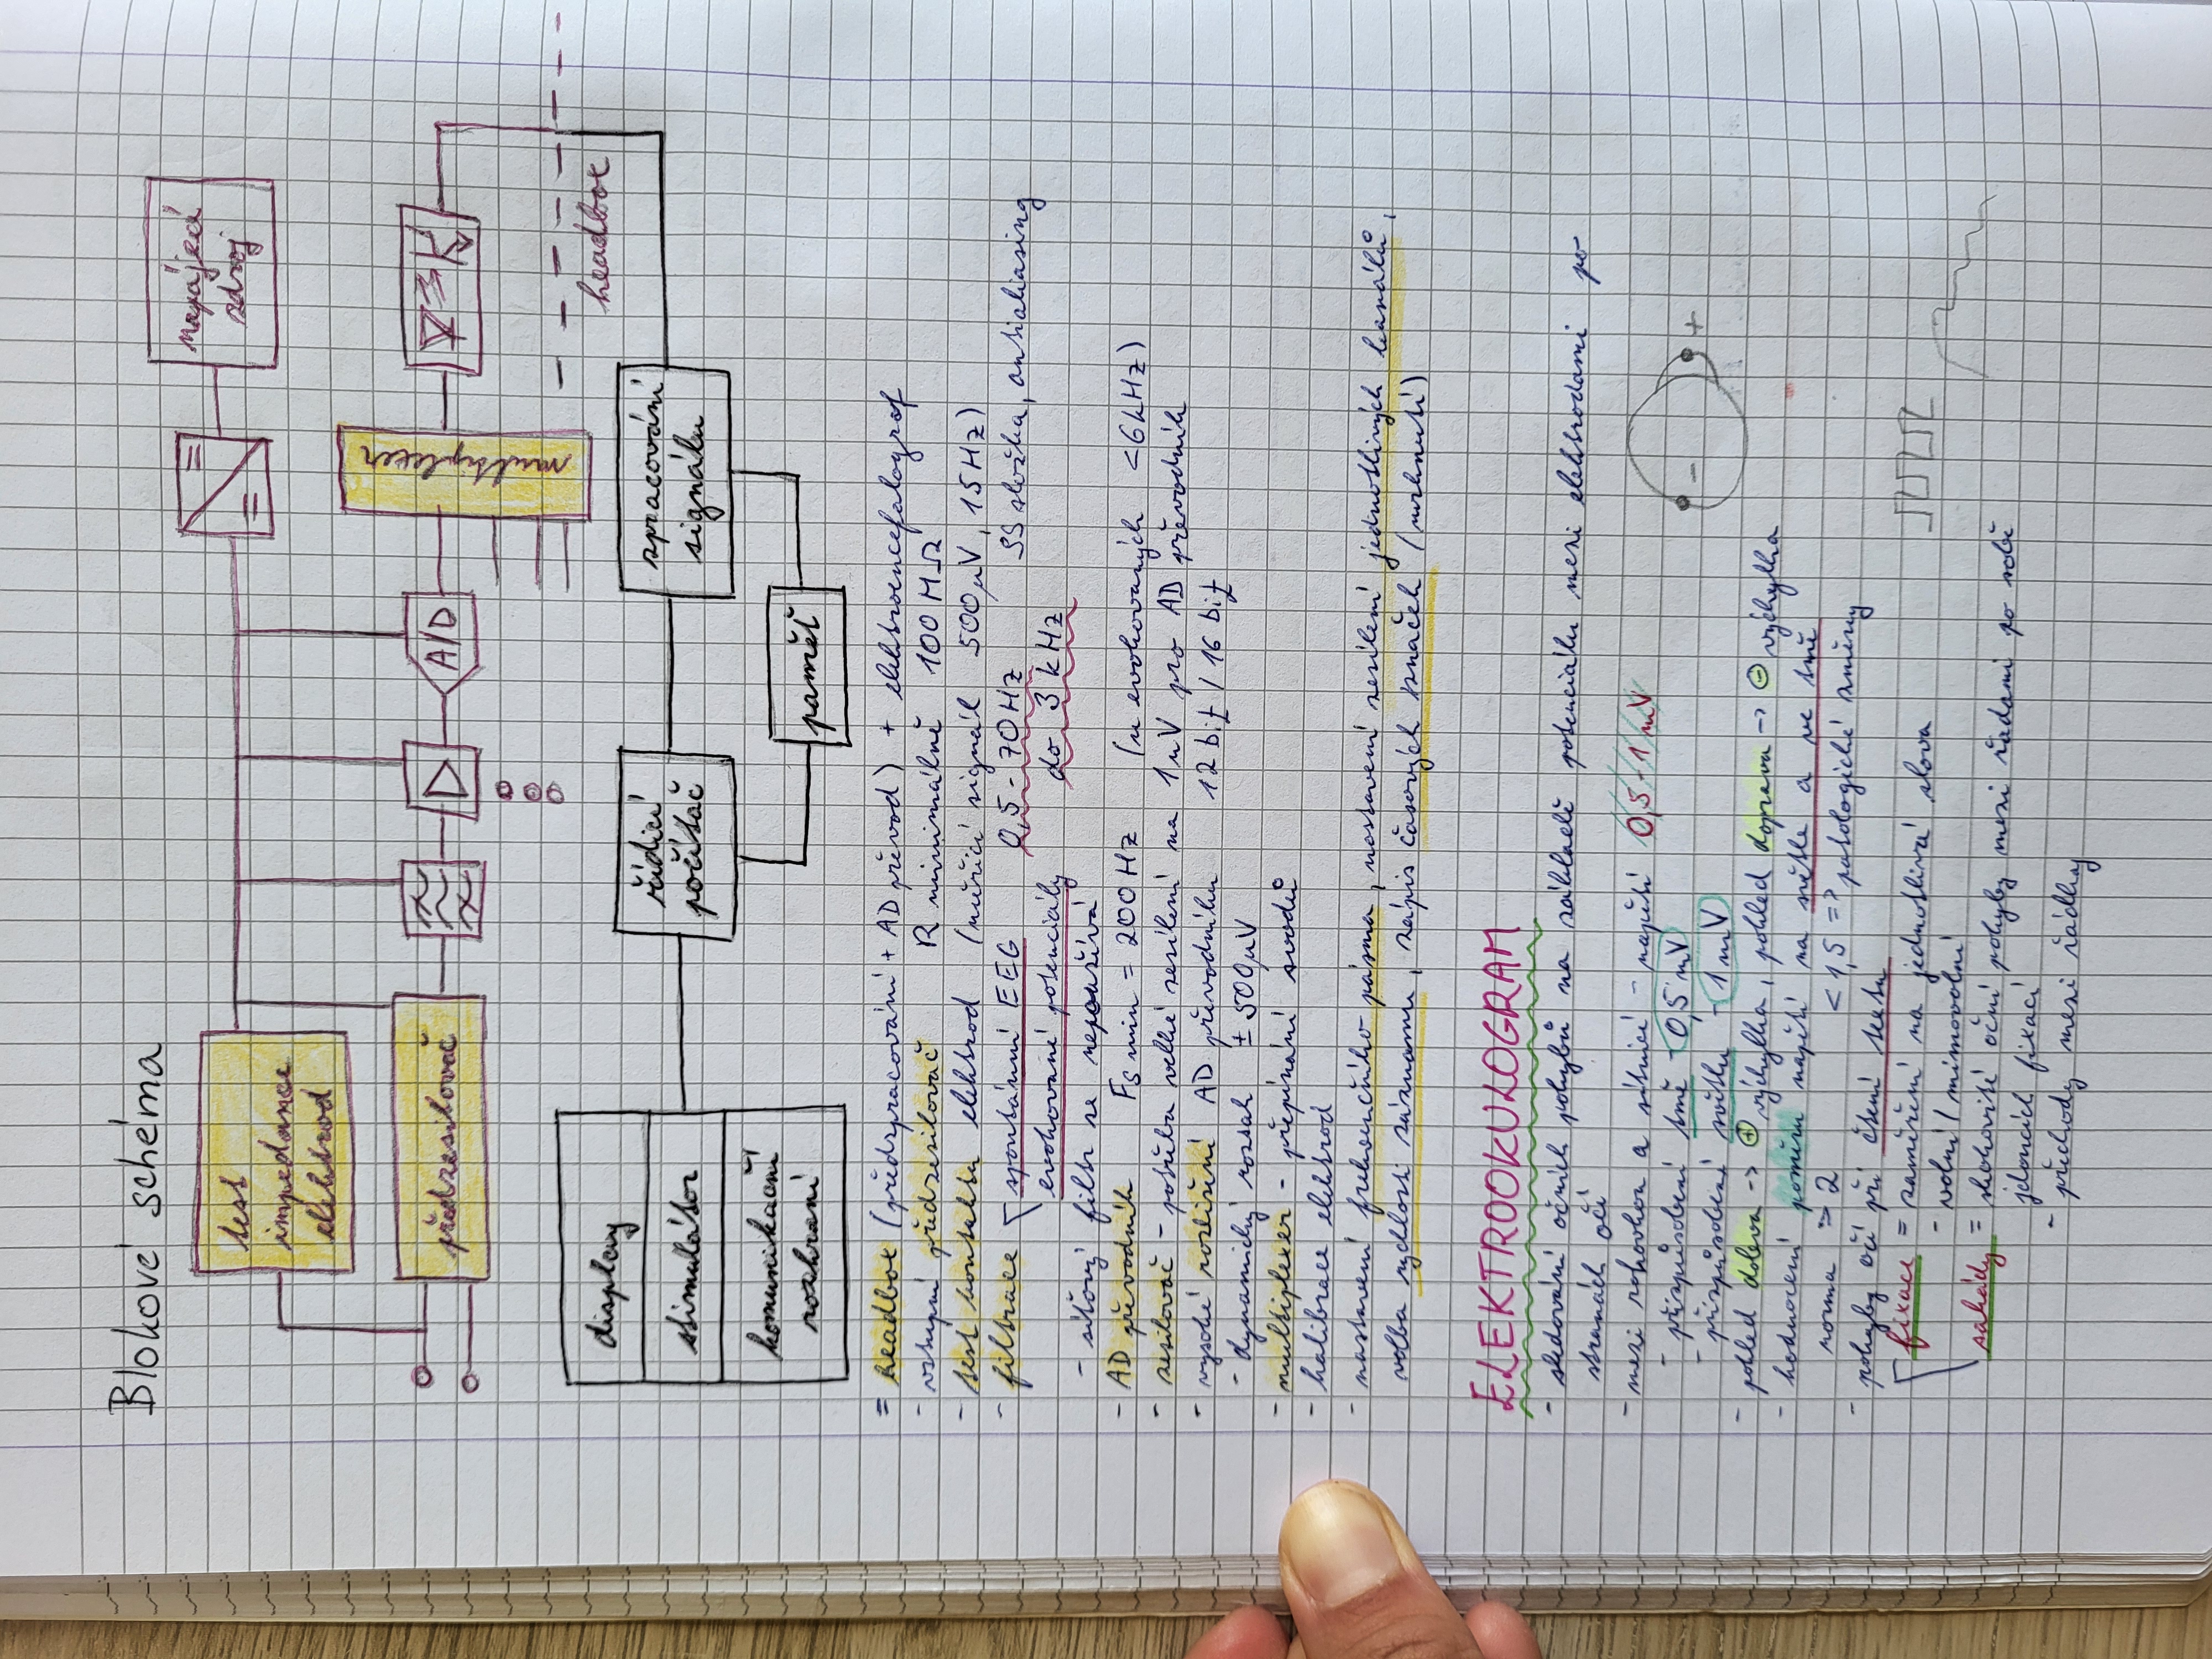 Blokové schéma
test
impedance
elektrod
napájecí
zdroj
předzesilovač
A/D
multiplexer
headbox
display
stimulátor
komunikační
rozhraní
řídicí
počítač
zpracování
signálu
paměť
= headbox (předzpracování + AD převod) + elektroencefalograf
- vstupní předzesilovač R minimálně 100 MΩ
- test kontaktu elektrod (měřicí signál 500µV, 15Hz)
- filtrace spontánní EEG 0,5 - 70Hz SS složka, antialiasing
evokované potenciály do 3 kHz
- síťový filtr se nepoužívá
- AD převodník Fs min = 200 Hz (u evokovaných <6kHz)
- zesilovač - potřeba velké zesílení na 1uV pro AD převodník
- vysoké rozlišení AD převodníku 12 bit / 16 bit
- dynamický rozsah ± 500µV
- multiplexer - přepínání svodů
- kalibrace elektrod
- nastavení frekvenčního pásma, nastavení zesílení jednotlivých kanálů,
volba rychlosti záznamu, zápis časových značek (mrknutí)
ELEKTROOKULOGRAM
- sledování očních pohybů na základě potenciálu mezi elektrodami po
stranách očí
- mezi rohovkou a sítnicí - napětí 0,5 - 1 mV
- přizpůsobení tmě - 0,5 mV
- přizpůsobení světlu - 1 mV
- +
- pohled doleva -> ⊕ výchylka, pohled doprava -> ⊖ výchylka
- hodnocení poměru napětí na světle a ve tmě
norma => 2 < 1,5 => patologické změny
- pohyby očí při čtení textu
fixace = zaměření na jednotlivá slova
- volní / mimovolní
sakády = skokovité oční pohyby mezi řadami po sobě
jdoucích fixací
- přechody mezi řádky